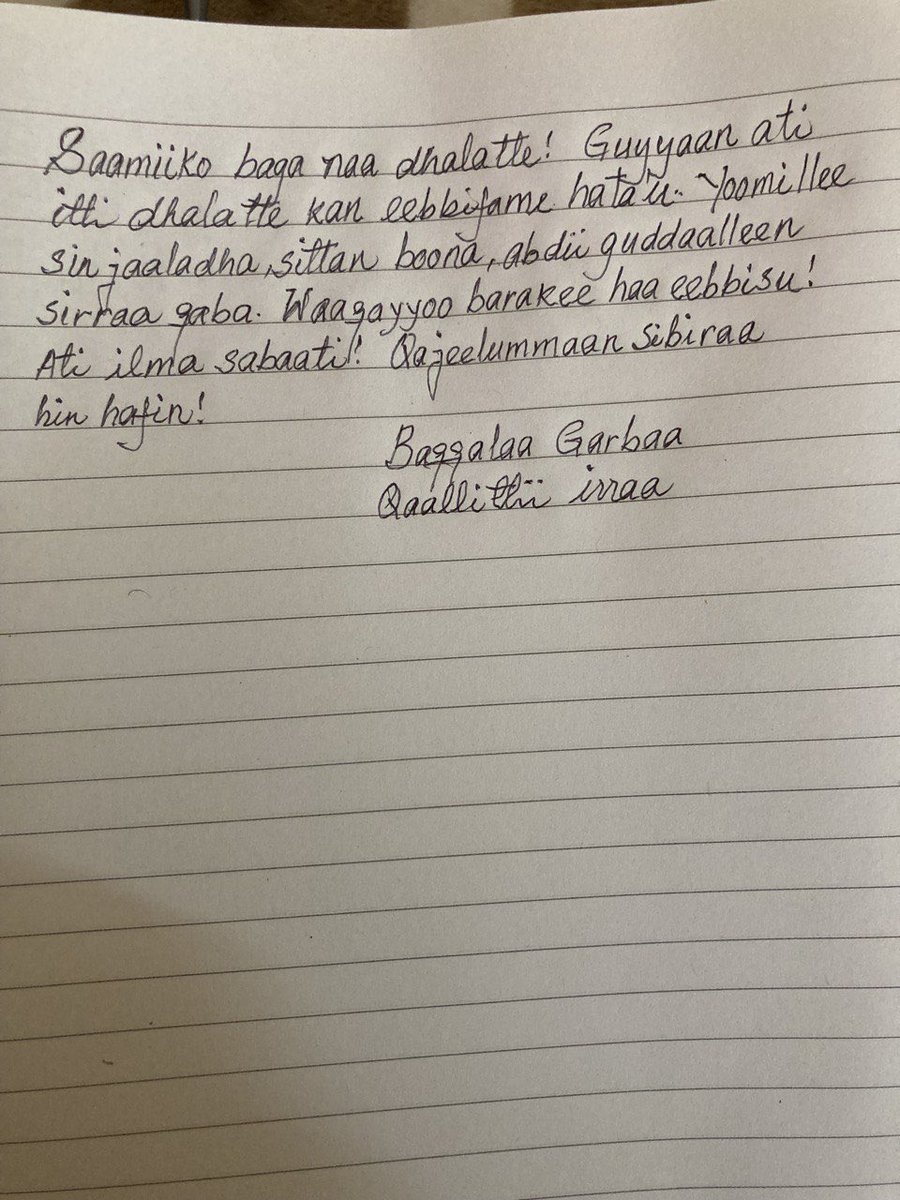 Saamiiko baga naa dhalatte! Guyyaan ati
itti dhalatte kan eebbifame hata'u. Yoomillee
sin jaaladha, sittan boona, abdii guddaalleen
sirraa qaba. Waaqayyoo barakee haa eebbisu!
Ati ilma sabaati! Qajeelummaan sibiraa
hin hafin!
Baqqalaa Garbaa
Qaallittii irraa